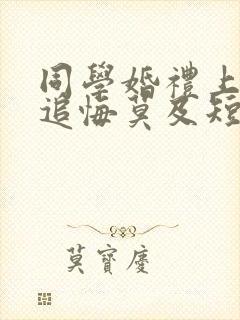 同學婚禮上
追悔莫及短
莫寶慶